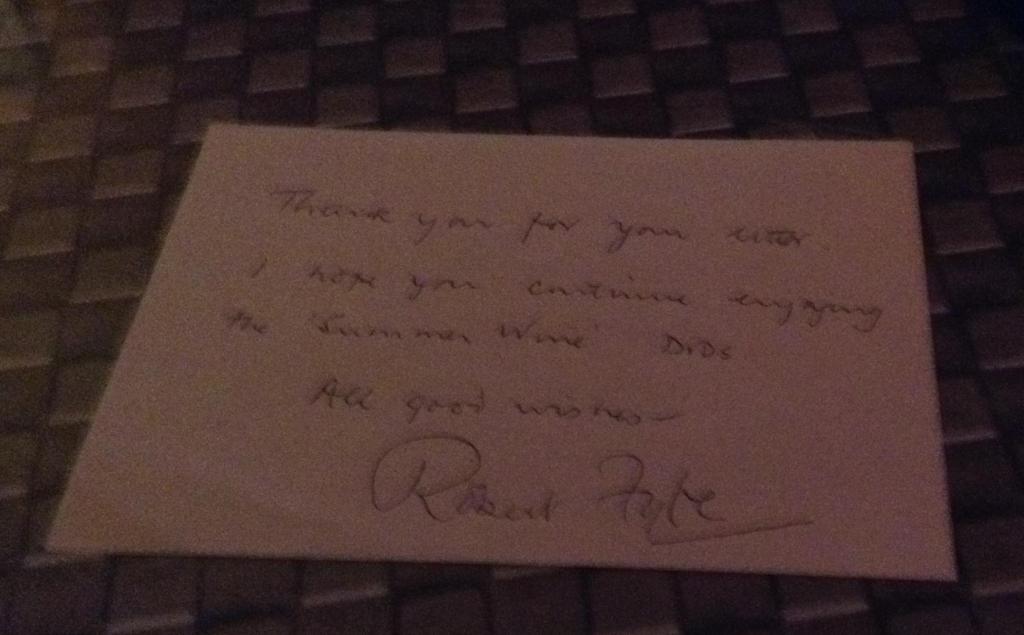 Thank you for your letter.
I hope you continue enjoying
the 'Summer Wine' DVDs
All good wishes—
Robert Fyfe